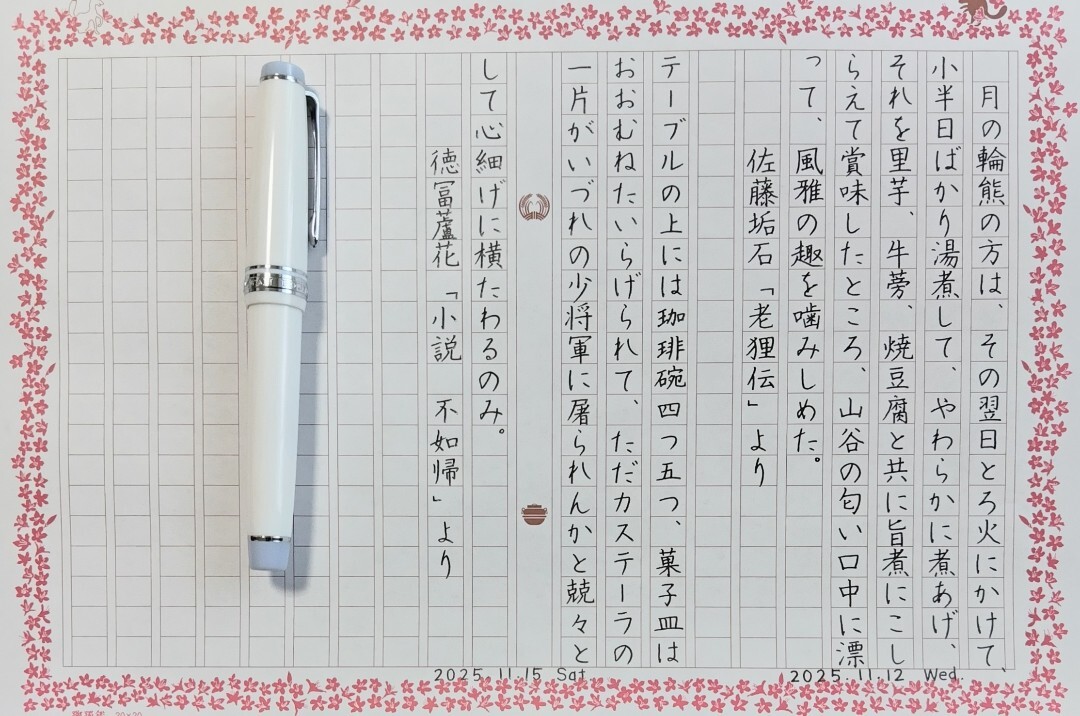 月の輪熊の方は、その翌日とろ火にかけて、
小半日ばかり湯煮して、やわらかに煮あげ、
それを里芋、牛蒡、焼豆腐と共に旨煮にこし
らえて賞味したところ、山谷の匂い口中に漂
って、風雅の趣を噛みしめた。
佐藤垢石「老狸伝」より
テーブルの上には珈琲碗四つ五つ、菓子皿は
おおむねたいらげられて、ただカステーラの
一片がいづれの少将軍に屠られんかと兢々と
して心細げに横たわるのみ。
徳冨蘆花「小説 不如帰」より
2025.11.15 Sat.
2025.11.12 Wed.
20×20